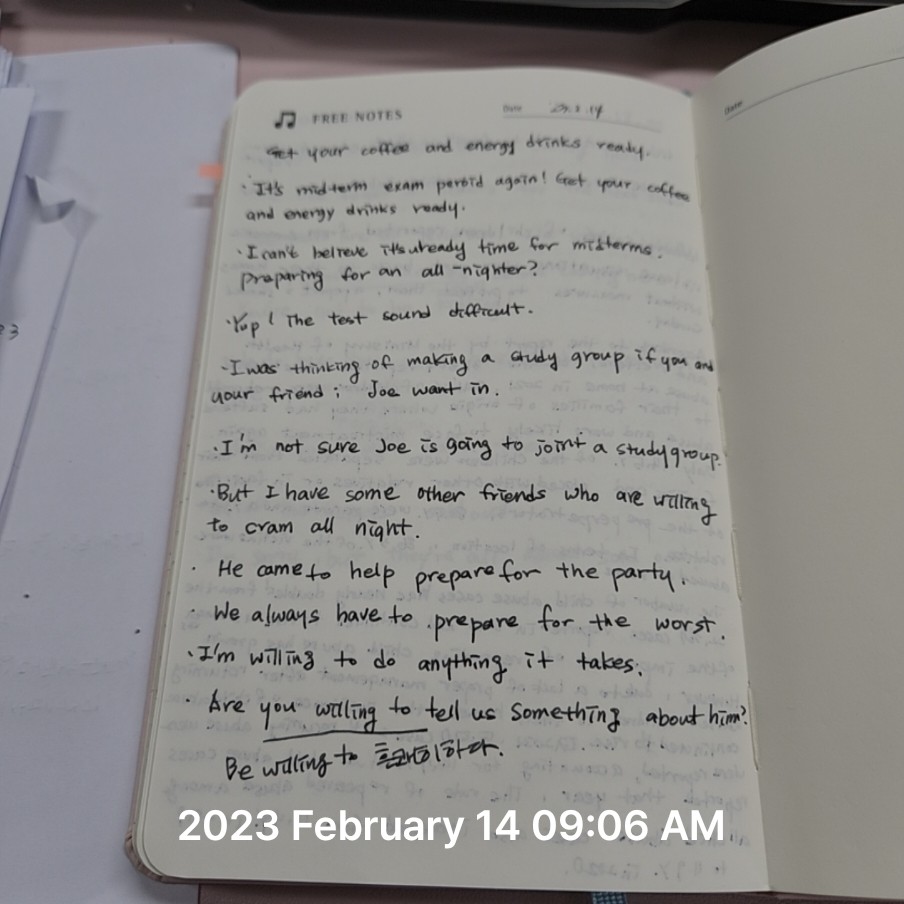 FREE NOTES
Date 23.2.14
Date
Get your coffee and energy drinks ready.
· It's midterm exam peroid again! Get your coffee
and energy drinks ready.
· I can't believe it's already time for midterms.
preparing for an all-nighter?
· Yup! The test sound difficult.
· I was thinking of making a study group if you and
your friend; Joe want in.
· I'm not sure Joe is going to joint a study group.
· But I have some other friends who are willing
to cram all night.
· He came to help prepare for the party.
· We always have to prepare for the worst.
· I'm willing to do anything it takes.
· Are you willing to tell us something about him?
Be willing to 흔쾌히하다.
2023 February 14 09:06 AM